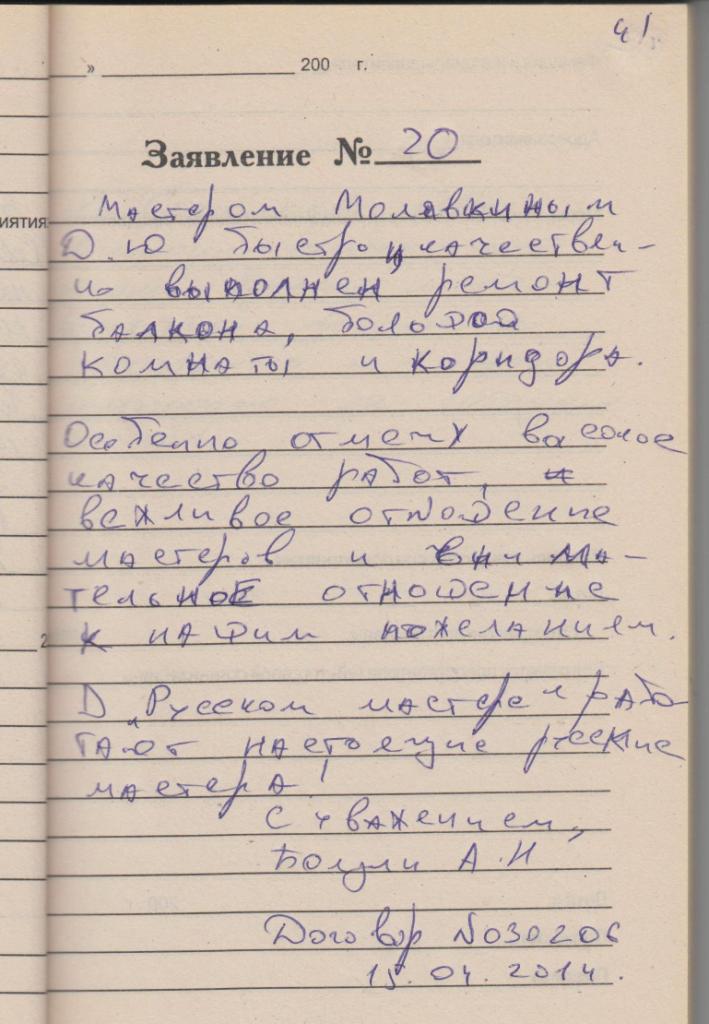 41
» 200 г.
Заявление № 20
иятия
Мастером Молавкиным
Д.Ю быстро и качествен-
но выполнен ремонт
балкона, большой
комнаты и коридора.
Особенно отмечу высокое
качество работ,
вежливое отношение
мастеров и внима-
тельное отношение
к нашим пожеланием.
В "Русском мастере" рабо-
тают настоящие русские
мастера!
С уважением,
А.Н
Договор №030206
15.04.2014.